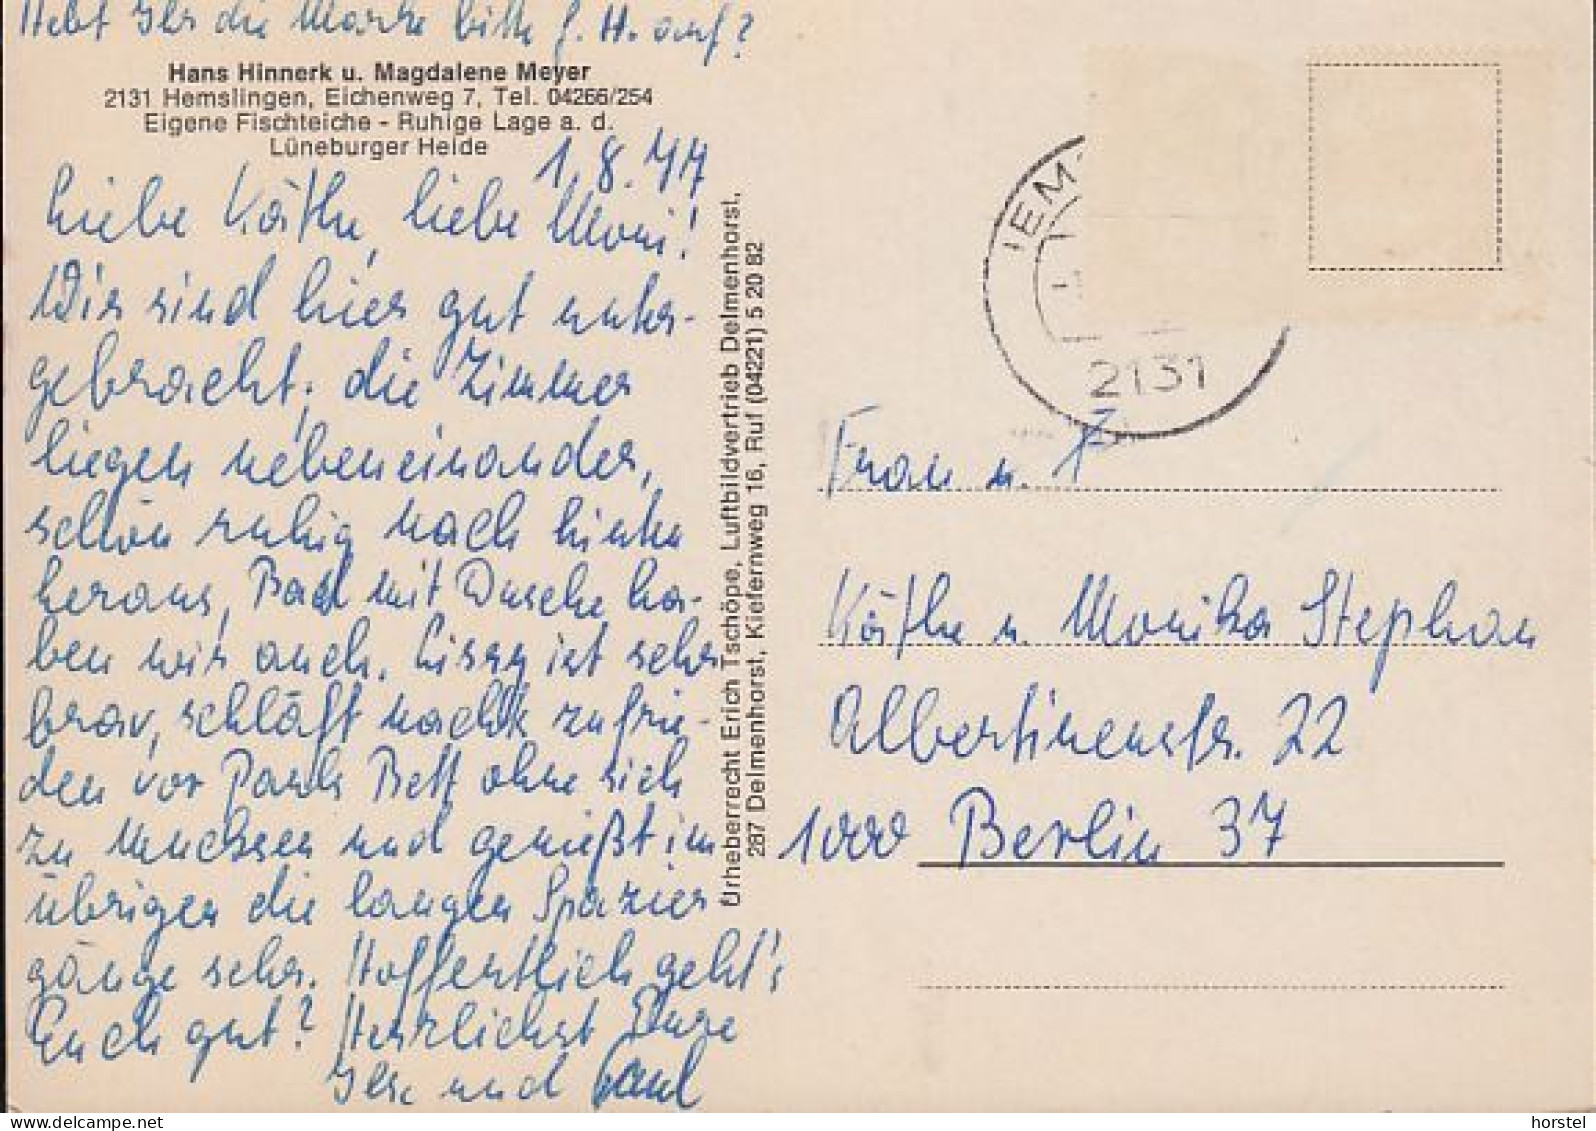 Hebt Ihr die Marke bitte f. H. auf?
Hans Hinnerk u. Magdalene Meyer
2131 Hemslingen, Eichenweg 7, Tel. 04266/254
Eigene Fischteiche - Ruhige Lage a. d.
Lüneburger Heide
1.8.77
Liebe Käthe, liebe Moni!
Wir sind hier gut unter-
gebracht; die Zimmer
liegen nebeneinander,
schön ruhig nach hinten
heraus, Bad mit Dusche ha-
ben wir auch. Cissy ist sehr
brav, schläft nachts zufrie-
den vor Pauls Bett ohne sich
zu mucksen und genießt im
übrigen die langen Spazier
gänge sehr. Hoffentlich geht's
Euch gut? Herzlichst Eure
Ilse und Paul
Urheberrecht Erich Tschöpe, Luftbildvertrieb Delmenhorst,
287 Delmenhorst, Kiefernweg 16, Ruf (04221) 5 20 82
HEM
2131
Frau u. Frl.
Käthe u. Monika Stephan
Albertinenstr. 22
1000 Berlin 37
horstel